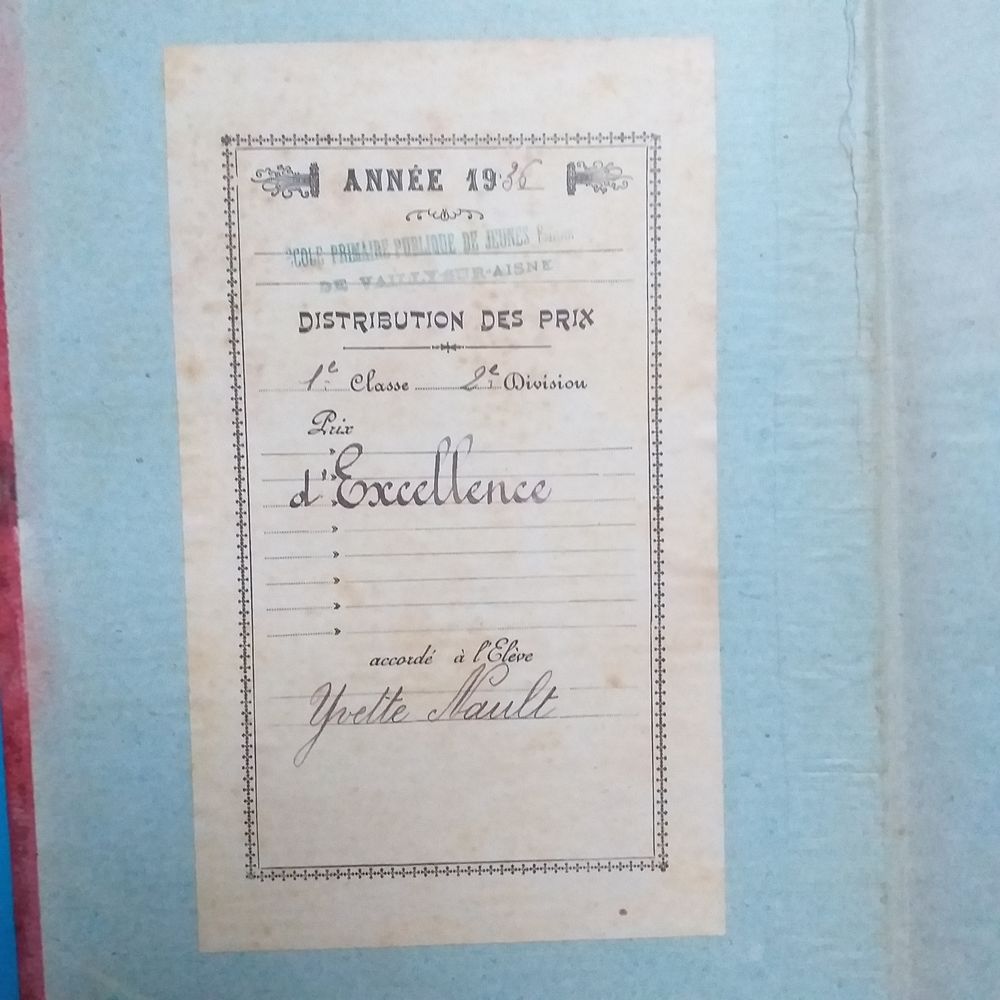 ANNÉE 1936
ÉCOLE PRIMAIRE PUBLIQUE DE JEUNES
DE VAILLY-SUR-AISNE
DISTRIBUTION DES PRIX
1e Classe 2e Division
Prix
d'Excellence
accordé à l'Elève
Yvette Nault